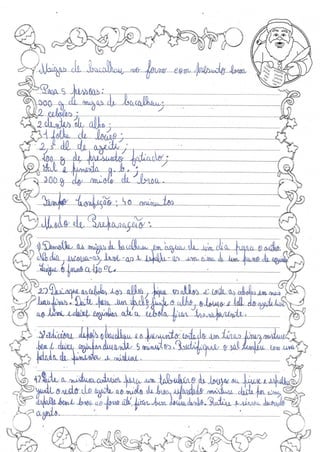 Migas de bacalhau no forno com presunto broa
Para 5 pessoas:
500 g de migas de bacalhau;
2 cebolas;
2 dentes de alho;
1 folha de louro;
2,5 dl de azeite;
100 g de presunto fatiado;
Sal e pimenta q. b.;
200 g do miolo de broa.
Tempo Confeção: 50 minutos
Modo de Preparação:
1) Demolhe as migas de bacalhau em água de um dia para o outro
No dia, escorra-as, lave-as e espalhe-as em cima de um pano de cozinha
ligue o forno a 180°C.
2) Descasque as cebolas e os alhos, pique os alhos e corte as cebolas em meias
luas finas. Deite para um tacho junte o alho, o louro e 1 dl do azeite leve
ao lume e deixe cozinhar até a cebola ficar transparente.
3) Adicione depois o bacalhau e o presunto cortado em tiras finas, misture
bem e deixe cozinhar durante 5 minutos. Rectifique o sal tempere com uma
pitada de pimenta e misture.
4) Deite a mistura anterior para um tabuleiro de louça ou pirex e espalhe
junte o resto do azeite ao miolo de broa, misture deite por cima
espalhe bem e leve ao forno até ficar bem dourado. Retire e sirva decorado
a gosto.